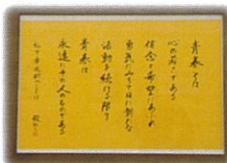 青春とは
心の若さである
信念と希望にあふれ
勇気にみちて日に新たな
活動を続ける限り
青春は
永遠にその人のものである